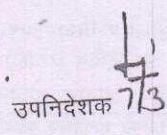 उपनिदेशक 7/3